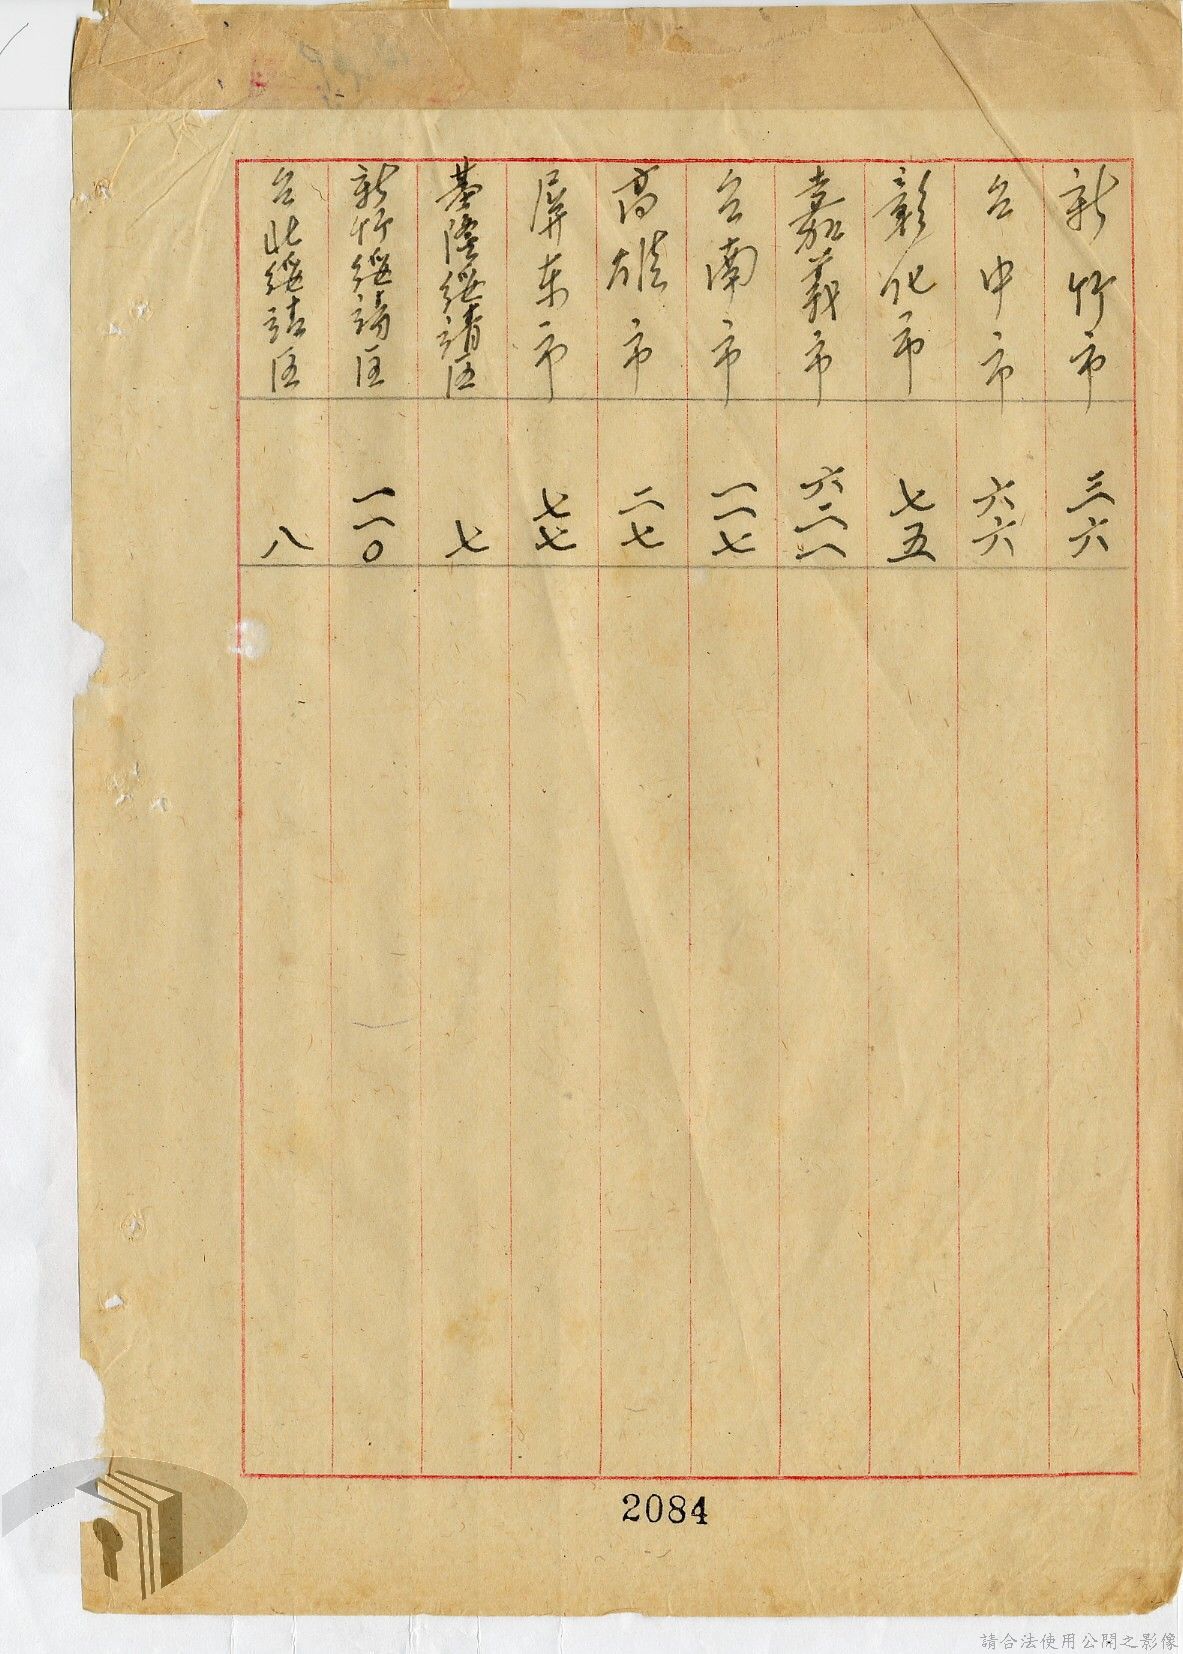 新竹市 三六
台中市 六六
彰化市 七五
嘉義市 六二八
台南市 一一七
高雄市 二七
屏东市 七七
基隆綏靖区 七
新竹綏靖区 一一〇
台北綏靖区 八
2084
請合法使用公開之影像